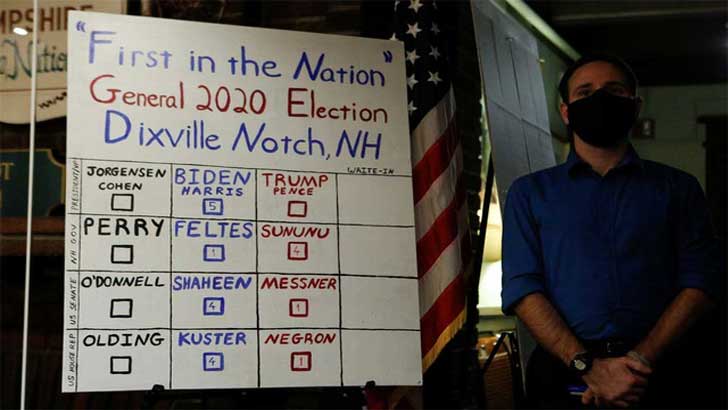 MPSHIRE
"First in the Nation"
General 2020 Election
Dixville Notch, NH
PRESIDENT/VP JORGENSEN COHEN BIDEN HARRIS 5 TRUMP PENCE WRITE-IN
NH GOV PERRY FELTES 1 SUNUNU 4
US SENATE O'DONNELL SHAHEEN 4 MESSNER 1
US HOUSE REP OLDING KUSTER 4 NEGRON 1